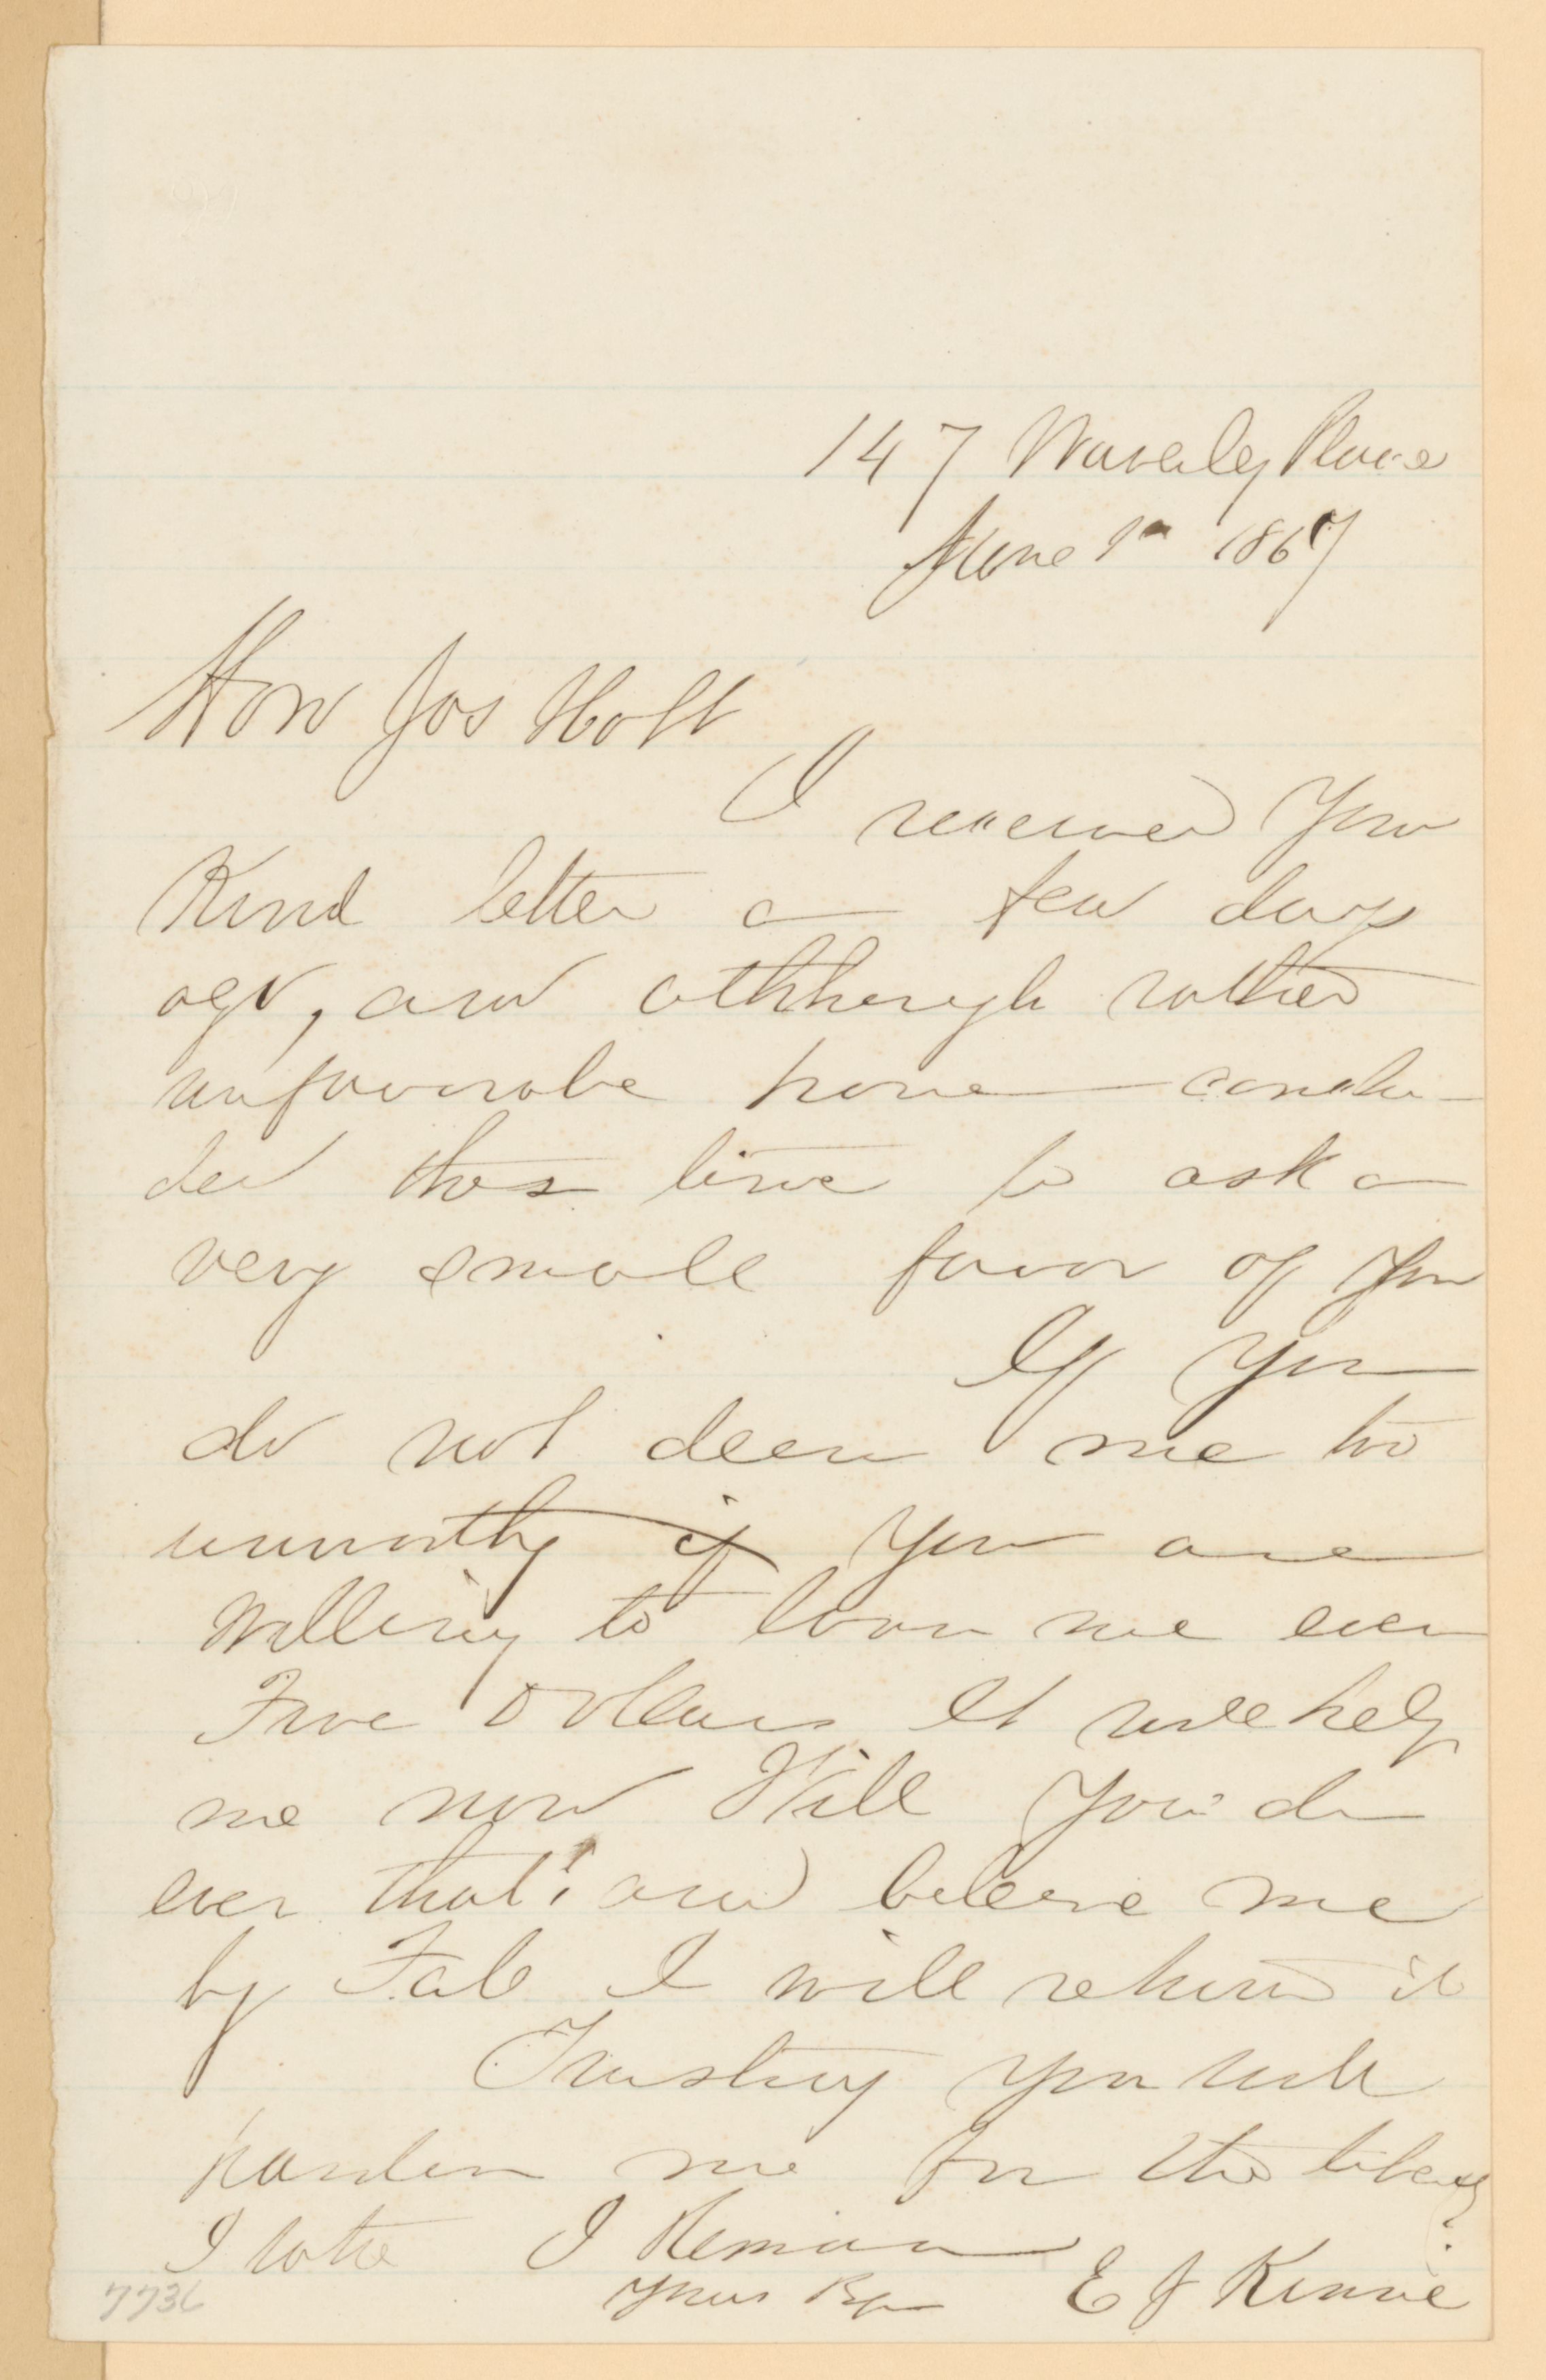 147 Waverley Place
June 1st 1867
Hon Jos Holt
I received your
Kind letter a few days
ago, and allthough rather
unfavorabe have conclu-
ded this time to ask a
very small favor of you
If you
do not deem me too
unworthy if you are
willing to loan me even
Five Dollars It will help
me now Will you do
even that? and beleive me
by Fall I will return it
Trusting you will
pardon me for the liberty
I take I Remain
Yours Rsp E J Kennie
7736